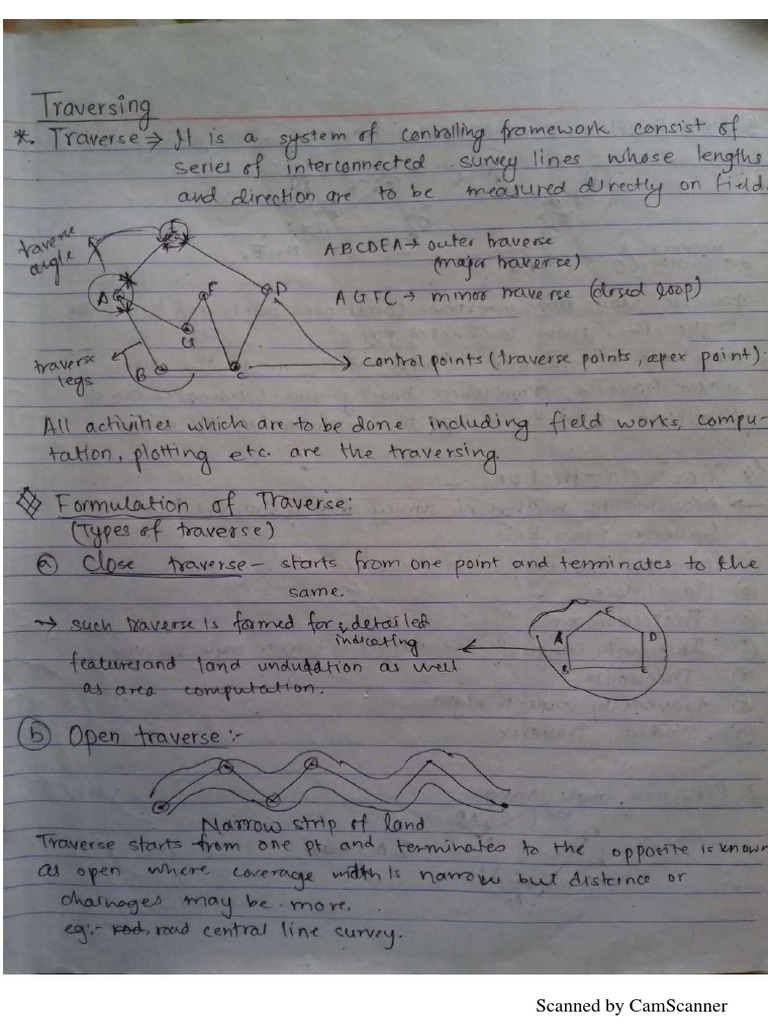 Traversing
*. Traverse ⇒ It is a system of controlling framework consist of
series of interconnected survey lines whose lengths
and direction are to be measured directly on field.
traverse
angle
E
A
F
D
G
B
C
traverse
legs
ABCDEA → outer traverse
(major traverse)
AGFC → minor traverse (closed loop)
control points (traverse points, apex point).
All activities which are to be done including field works, compu-
tation, plotting etc. are the traversing.
Formulation of Traverse:
(Types of traverse)
(a) Close traverse - starts from one point and terminates to the
same.
→ such traverse is formed for detailed
indicating
features and land undulation as well
as area computation.
A
B
D
E
(b) Open traverse :-
Narrow strip of land
Traverse starts from one pt. and terminates to the opposite is known
as open where coverage width is narrow but distance or
chainages may be more.
eg:- road central line survey.
Scanned by CamScanner